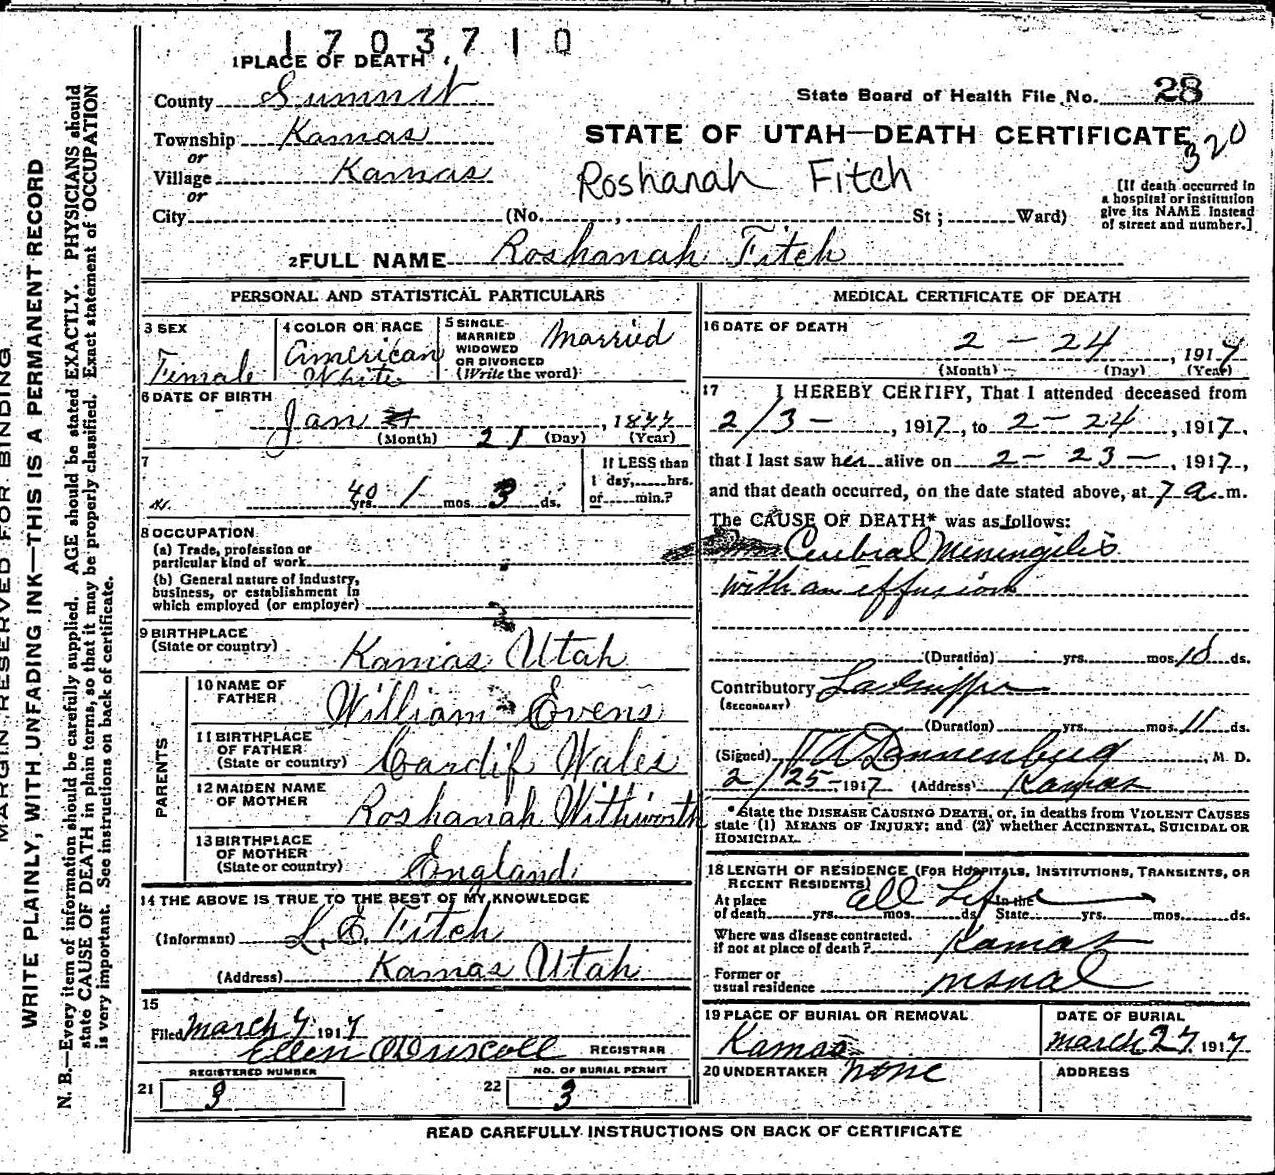 1703710
1 PLACE OF DEATH
County Summit
Township Kamas
or
Village Kamas
or
City (No. , St ; Ward)
State Board of Health File No. 28
STATE OF UTAH—DEATH CERTIFICATE
320
Roshanah Fitch
[If death occurred in
a hospital or institution
give its NAME instead
of street and number.]
2 FULL NAME Roshanah Fitch
PERSONAL AND STATISTICAL PARTICULARS
3 SEX
Female
4 COLOR OR RACE
American
White
5 SINGLE
MARRIED
WIDOWED
OR DIVORCED
(Write the word)
Married
6 DATE OF BIRTH
Jan 21, 1877
(Month) (Day) (Year)
7
40 yrs. 1 mos. 3 ds.
If LESS than
1 day, hrs.
or min.?
8 OCCUPATION
(a) Trade, profession or
particular kind of work
(b) General nature of industry,
business, or establishment in
which employed (or employer)
9 BIRTHPLACE
(State or country)
Kamas Utah
PARENTS
10 NAME OF
FATHER
William Evens
11 BIRTHPLACE
OF FATHER
(State or country)
Cardif Wales
12 MAIDEN NAME
OF MOTHER
Roshanah Withworth
13 BIRTHPLACE
OF MOTHER
(State or country)
England
14 THE ABOVE IS TRUE TO THE BEST OF MY KNOWLEDGE
(Informant) L. E. Fitch
(Address) Kamas Utah
15
Filed March 7, 1917
Ellen O'Driscoll REGISTRAR
REGISTERED NUMBER
21 3
NO. OF BURIAL PERMIT
22 3
MEDICAL CERTIFICATE OF DEATH
16 DATE OF DEATH
2 - 24, 1917
(Month) (Day) (Year)
17 I HEREBY CERTIFY, That I attended deceased from
2/3-, 1917, to 2-24, 1917,
that I last saw her alive on 2-23-, 1917,
and that death occurred, on the date stated above, at 7 a. m.
The CAUSE OF DEATH* was as follows:
Cerebral Meningitis
with an effusion
(Duration) yrs. mos. 18 ds.
Contributory Lagrippe
(SECONDARY)
(Duration) yrs. mos. 11 ds.
(Signed) M. D.
2/25-1917 (Address) Kamas
*State the DISEASE CAUSING DEATH, or, in deaths from VIOLENT CAUSES
state (1) MEANS OF INJURY; and (2) whether ACCIDENTAL, SUICIDAL OR
HOMICIDAL.
18 LENGTH OF RESIDENCE (FOR HOSPITALS, INSTITUTIONS, TRANSIENTS, OR
RECENT RESIDENTS)
At place
of death yrs. mos. ds. In the State yrs. mos. ds.
all Life
Where was disease contracted,
if not at place of death? Kamas
Former or
usual residence
19 PLACE OF BURIAL OR REMOVAL
Kamas
DATE OF BURIAL
March 27, 1917
20 UNDERTAKER none
ADDRESS
READ CAREFULLY INSTRUCTIONS ON BACK OF CERTIFICATE
MARGIN RESERVED FOR BINDING
WRITE PLAINLY, WITH UNFADING INK—THIS IS A PERMANENT RECORD
N. B.—Every item of information should be carefully supplied. AGE should be stated EXACTLY. PHYSICIANS should
state CAUSE OF DEATH in plain terms, so that it may be properly classified. Exact statement of OCCUPATION
is very important. See instructions on back of certificate.